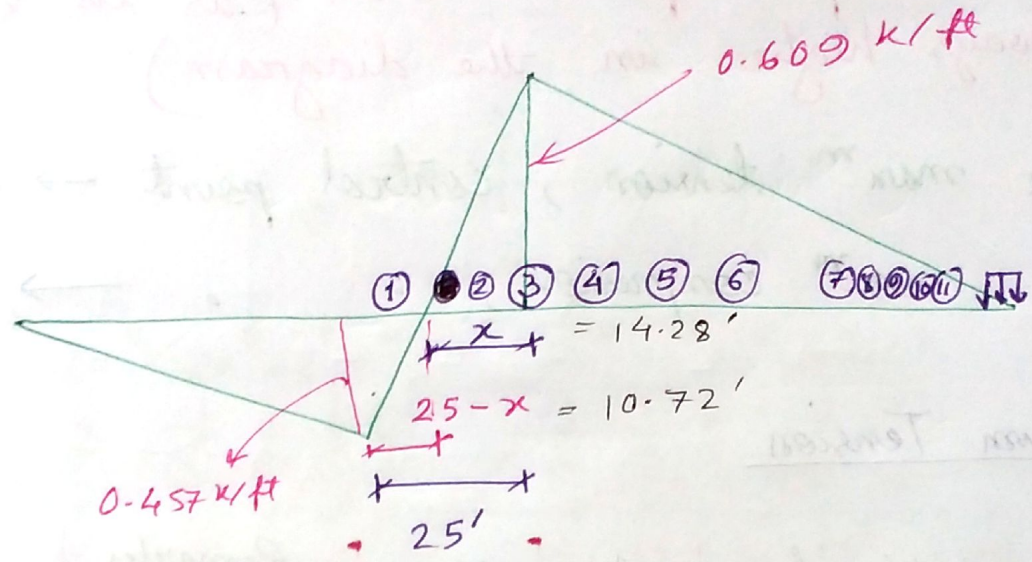 0.609 k/ft
① ② ③ ④ ⑤ ⑥ ⑦ ⑧ ⑨ ⑩ ⑪
x = 14.28'
25-x = 10.72'
0.457 k/ft
25'